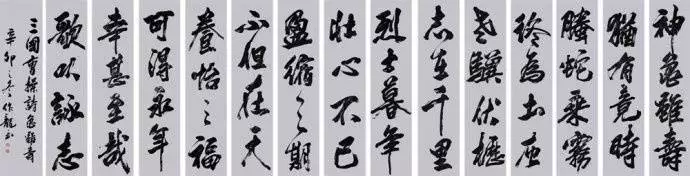 神龜雖壽
猶有竟時
騰蛇乘霧
終為土灰
老驥伏櫪
志在千里
烈士暮年
壯心不已
盈縮之期
不但在天
養怡之福
可得永年
幸甚至哉
歌以詠志
三國曹操詩龜雖壽
辛卯之冬作龍书